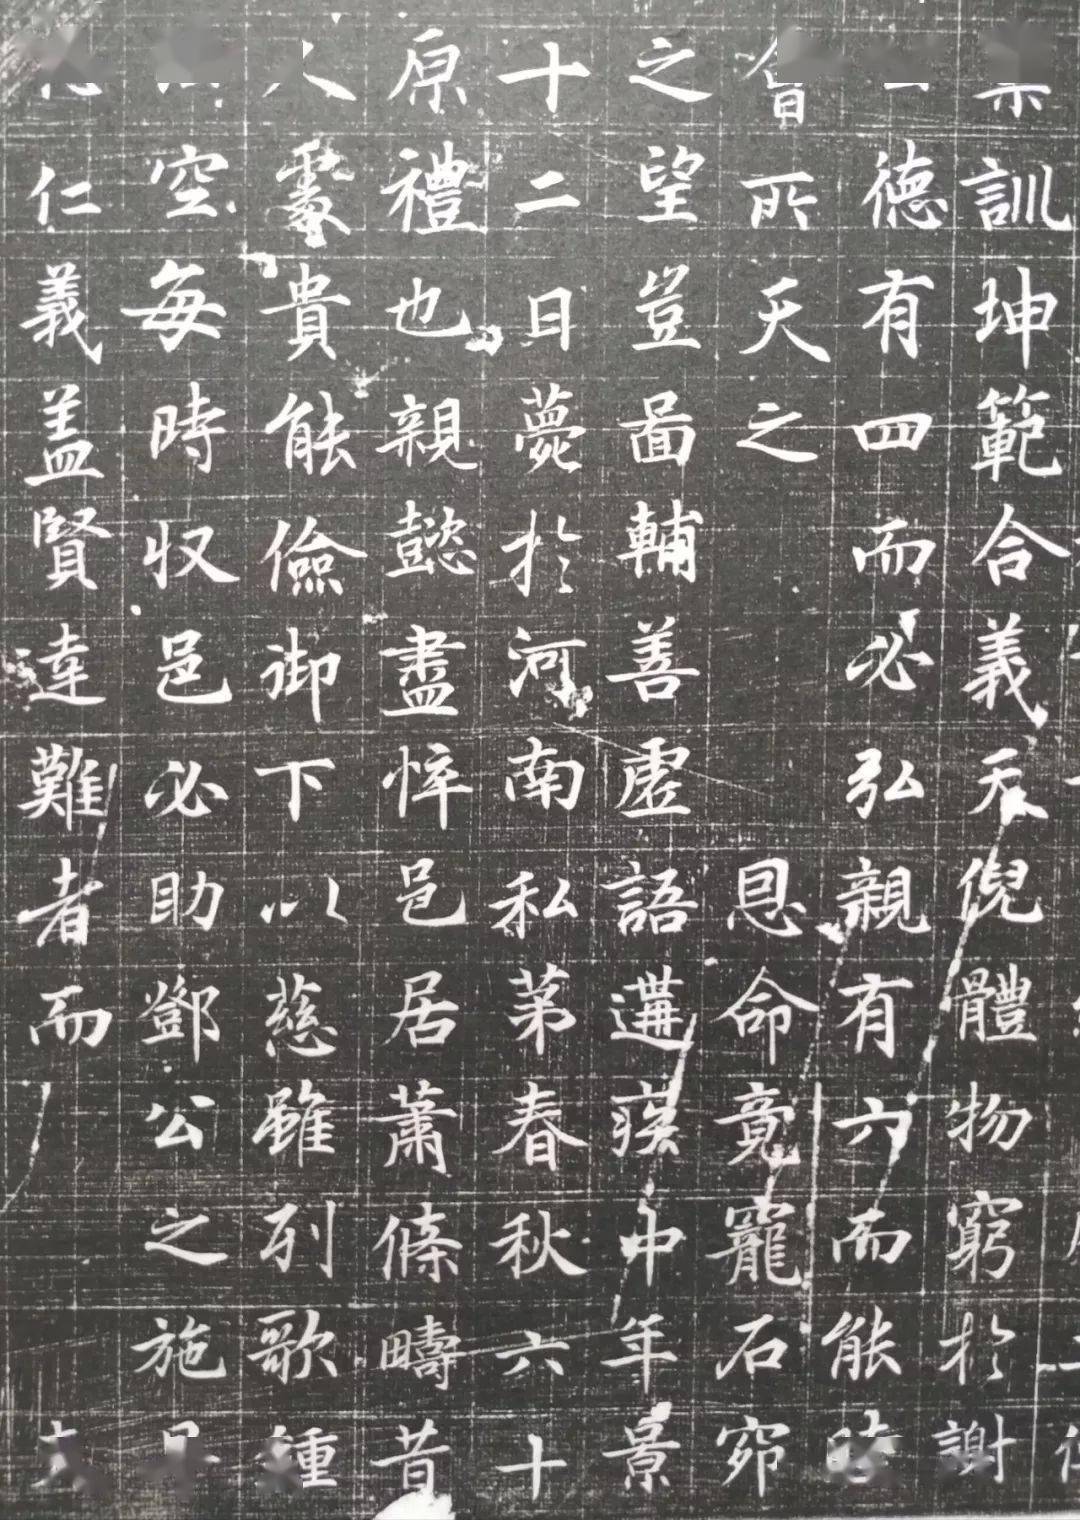 訓坤範合義天倪體物窮於謝
德有四而必弘親有六而能
所天之恩命竟寵石窌
之望豈啚輔善虛語遘瘼中年景
十二日薨於河南私苐春秋六十
原禮也親懿盡悴邑居蕭條疇昔
人處貴能儉御下以慈雖列歌鍾
空每時收邑必助鄧公之施
仁義盖賢達難者而